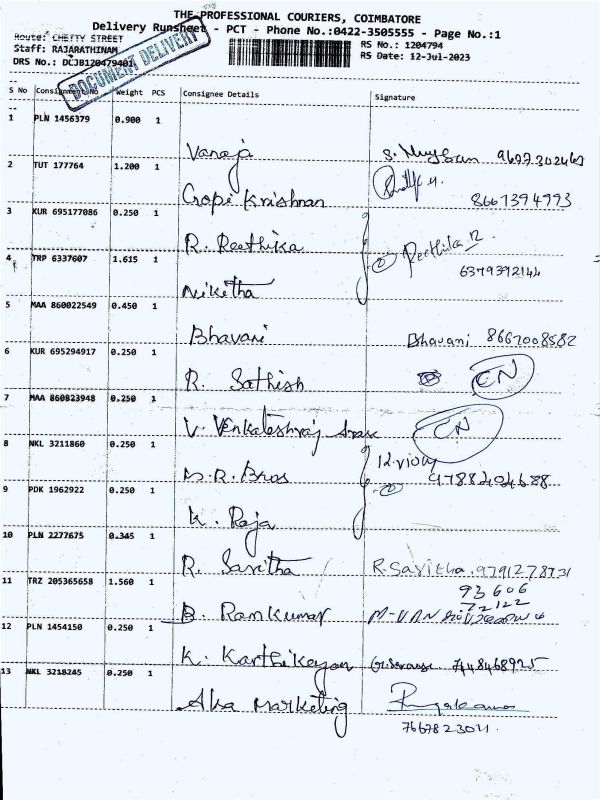 THE PROFESSIONAL COURIERS, COIMBATORE
Delivery Runsheet - PCT - Phone No.:0422-3505555 - Page No.:1
Route: CHETTY STREET
RS No.: 1204794
Staff: RAJARATHINAM
RS Date: 12-Jul-2023
DRS No.: DCJB120479401
DOCUMENT DELIVERY
S No Consignment No Weight PCS Consignee Details Signature
1 PLN 1456379 0.900 1
Vanaja
2 TUT 177764 1.200 1
Gopi Krishnan 8667394773
3 KUR 695177086 0.250 1
R. Reethika Reethika R
4 TRP 6337607 1.615 1
6379392144
Niketha
5 MAA 860022549 0.450 1
Bhavani Bhavani 8667008582
6 KUR 695294917 0.250 1
R. Sathish CN
7 MAA 860823948 0.250 1
V. Venkateshraj CN
8 NKL 3211860 0.250 1
M.R. Bros 9788424688
9 PDK 1962922 0.250 1
K. Raja
10 PLN 2277675 0.345 1
R. Savitha R. Savitha. 9791278731
11 TRZ 205365658 1.560 1
93606
72122
B. Ramkumar
12 PLN 1454150 0.250 1
K. Karthikeyan 7448468925
13 NKL 3218245 0.250 1
Aka Marketing
7667823011